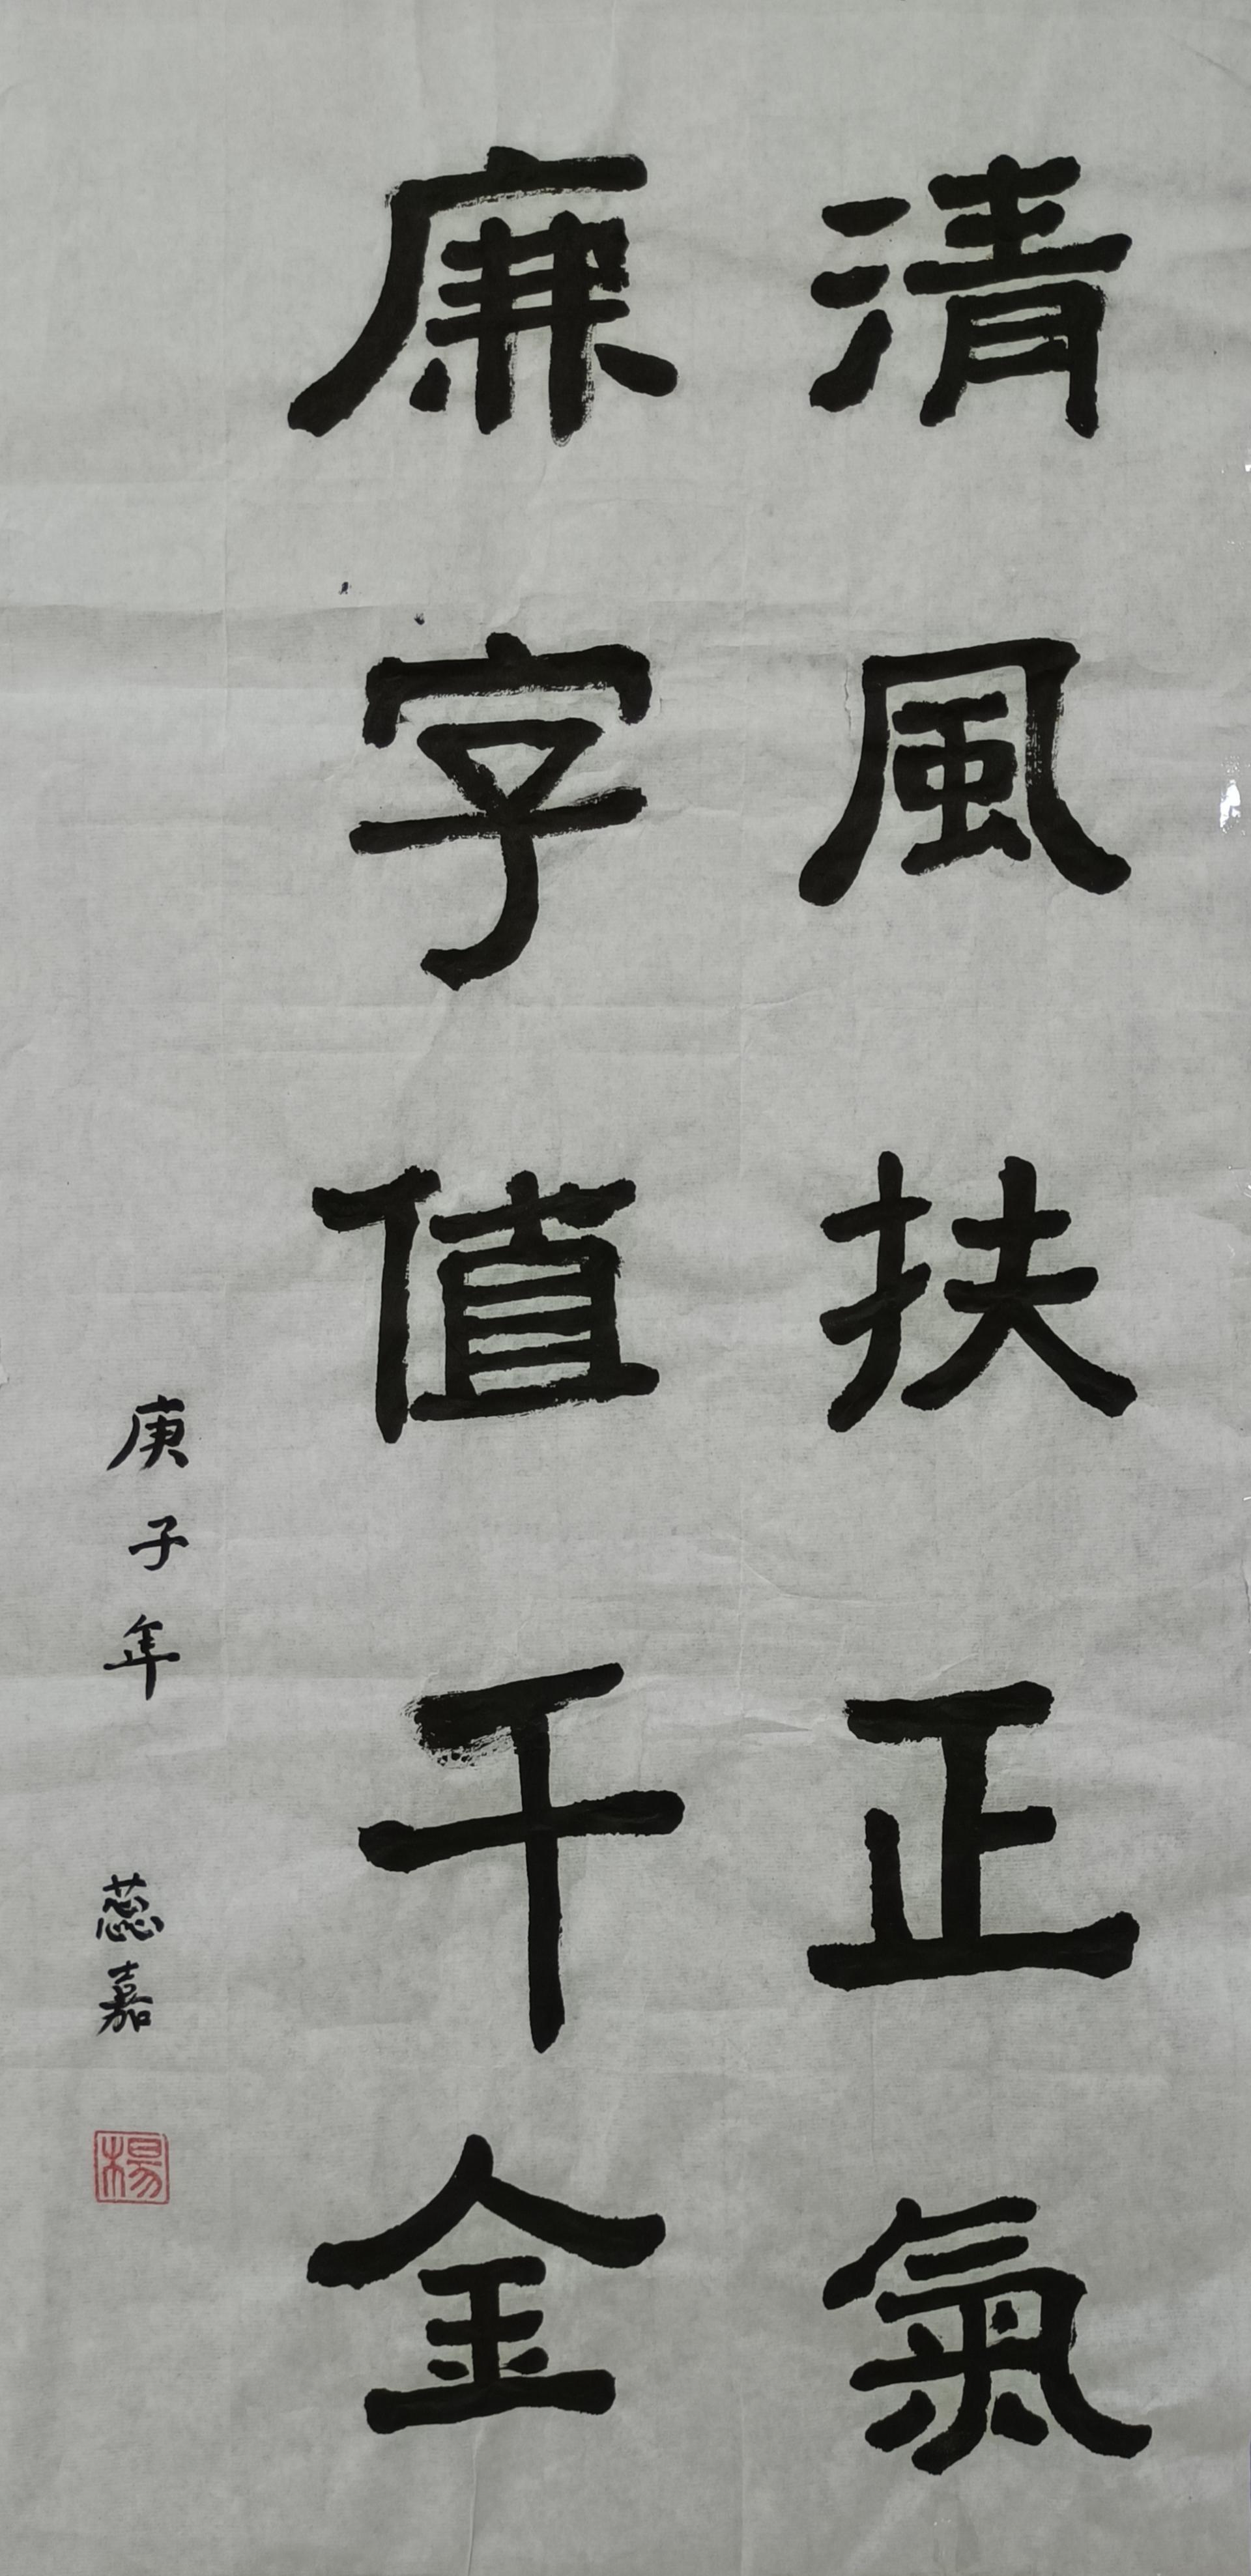 清風扶正氣
廉字值千金
庚子年 蕊嘉
楊